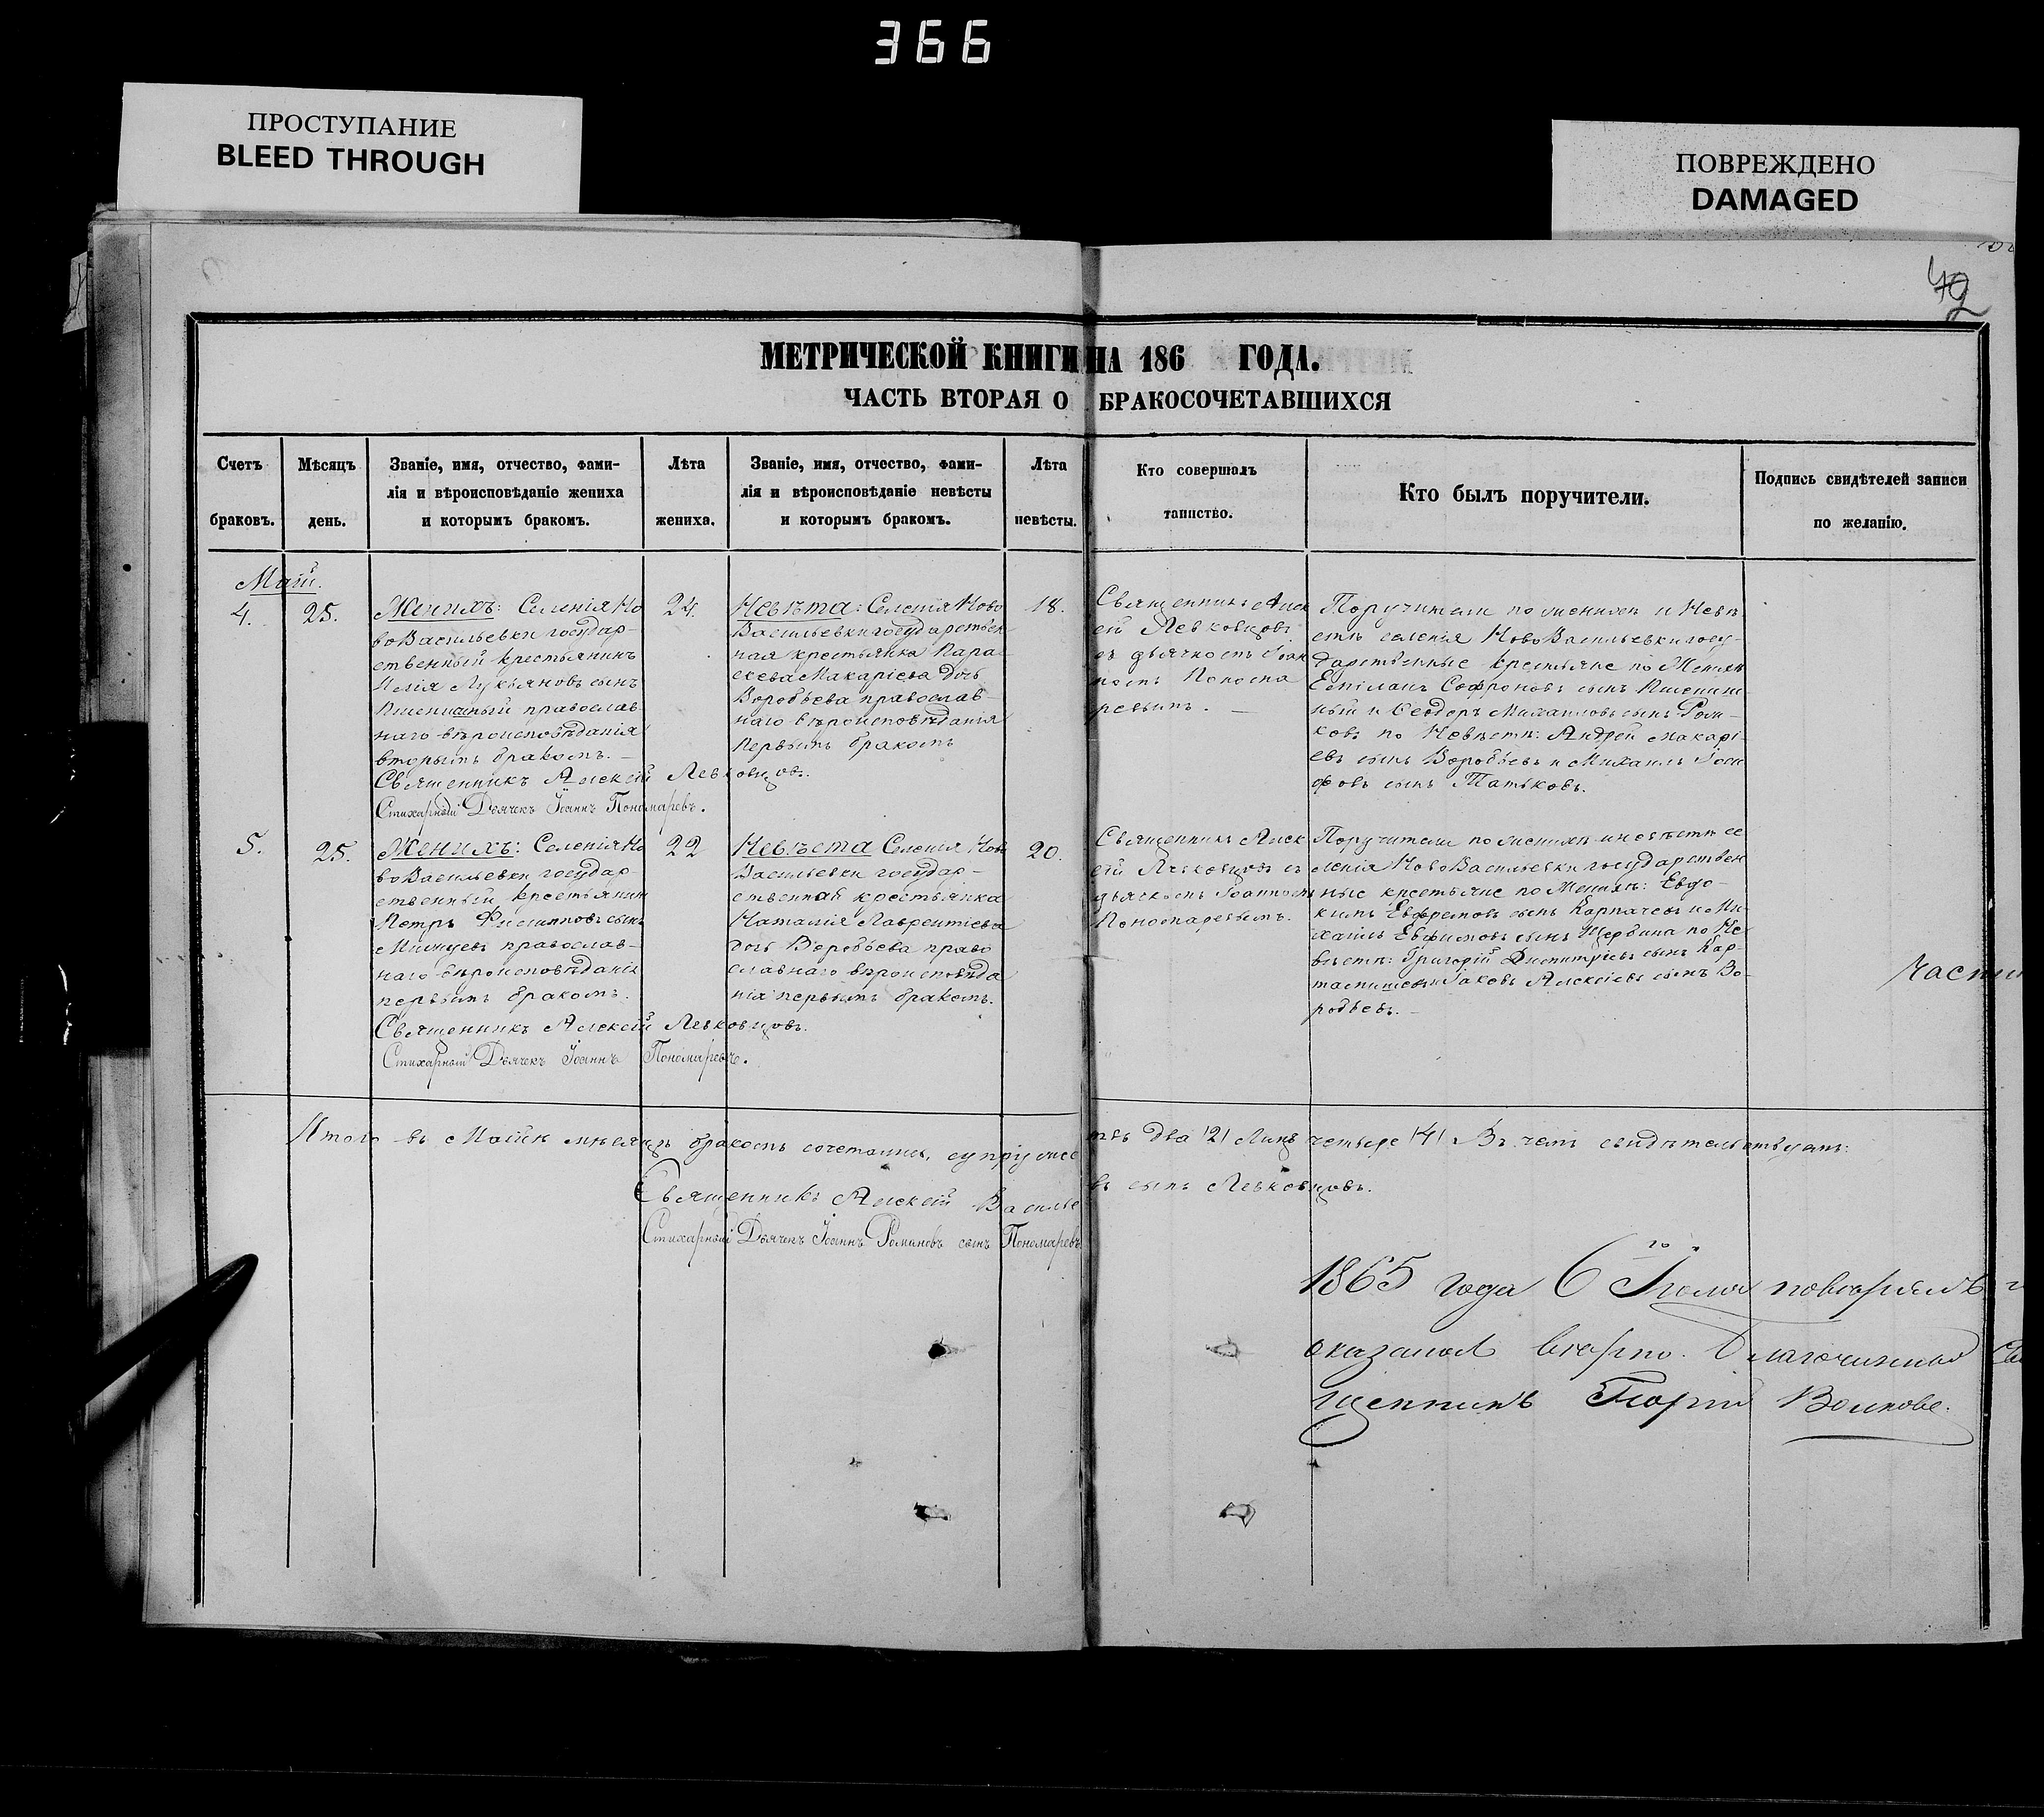 366
ПРОСТУПАНИЕ
BLEED THROUGH
ПОВРЕЖДЕНО
DAMAGED
42
МЕТРИЧЕСКОЙ КНИГИ НА 186 ГОДА.
ЧАСТЬ ВТОРАЯ О БРАКОСОЧЕТАВШИХСЯ
Счетъ
браковъ.
Мѣсяцъ
день.
Званіе, имя, отчество, фами-
лія и вѣроисповѣданіе жениха
и которымъ бракомъ.
Лѣта
жениха.
Званіе, имя, отчество, фами-
лія и вѣроисповѣданіе невѣсты
и которымъ бракомъ.
Лѣта
невѣсты.
Кто совершалъ
таинство.
Кто былъ поручители.
Подпись свидѣтелей записи
по желанію.
Маій.
4.
25.
Женихъ: Селенія Но
воВасильевки государ-
ственный крестьянинъ
Илія Лукьяновъ сынъ
Пшеничный православ
наго вѣроисповѣданія
вторымъ бракомъ. —
24.
Невѣста: Селенія Ново
Васильевки государствен
ная крестьянка Пара
скева Макаріева дочь
Воробьева православ-
наго вѣроисповѣданія
первымъ бракомъ
18.
Священникъ Алек
сій Левковцовъ
съ дьячкомъ Іоан
номъ Понома
ревымъ. —
Поручители по женихѣ и Невѣ
стѣ селенія НовоВасильевки госу-
дарственные крестьяне по Женихѣ
Софроновъ сынъ Пшенич-
ный и Ѳеодоръ Михаиловъ сынъ
ковъ по Невѣстѣ: Андрей Макарі-
евъ сынъ Воробьевъ и Михаилъ Іоси
фовъ сынъ Татьковъ.
Священникъ Алексій Левковцовъ.
Стихарный Дьячекъ Іоаннъ Пономаревъ.
5.
25.
Женихъ: Селенія Но
воВасильевки государ-
ственный крестьянинъ
Петръ сынъ
православ-
наго вѣроисповѣданія
первымъ бракомъ.
22
Невѣста Селенія Ново
Васильевки государ-
ственная крестьянка
Наталія Лаврентіева
дочь Воробьева право
славнаго вѣроисповѣда
нія первымъ бракомъ.
20.
Священникъ Алек
сій Левковцовъ съ
дьячкомъ Іоанномъ
Пономаревымъ.
Поручители по женихѣ и невѣстѣ се
ленія НовоВасильевки государствен
ные крестьяне по Женихѣ: Евдо-
кимъ Евфремовъ сынъ Карпачевъ и Ми-
хаилъ Евфимовъ сынъ Щербина по Не-
вѣстѣ: Григорій Димитріевъ сынъ Кар-
и Іаковъ Алексіевъ сынъ Во-
робьевъ. —
Священникъ Алексій Левковцовъ.
Стихарный Дьячекъ Іоаннъ Пономаревъ.
Части
Итого въ Маій мѣсяцѣ бракомъ сочетались, супруже
ствъ два /2/ Лицъ четыре /4/ Въ чемъ свидѣтельствуемъ:
Священникъ Алексій Василье
въ сынъ Левковцовъ.
Стихарный Дьячекъ Іоаннъ Романовъ сынъ Пономаревъ
1865 года 6го Іюля
оказалось вѣрно. Благочинный Свя
щенникъ Георгій Волковъ.